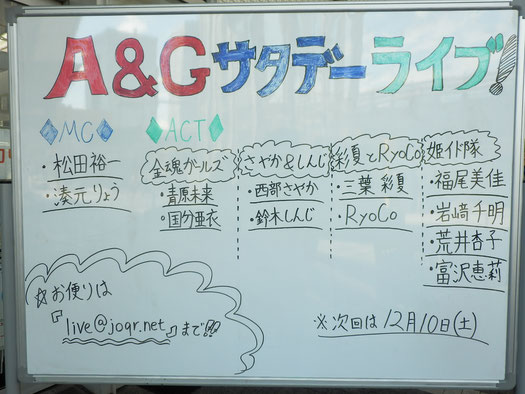 A&Gサタデーライブ!
◆MC◆
・松田裕一
・湊元りょう
◆ACT◆
金魂ガールズ
・青原未来
・国分亜衣
さやか&しんじ
・西部さやか
・鈴木しんじ
彩夏とRyoCo
・三葉 彩夏
・RyoCo
姫イド隊
・福尾美佳
・岩﨑千明
・荒井杏子
・富沢恵莉
☆お便りは
『live@joqr.net』まで!!
※次回は12月10日(土)